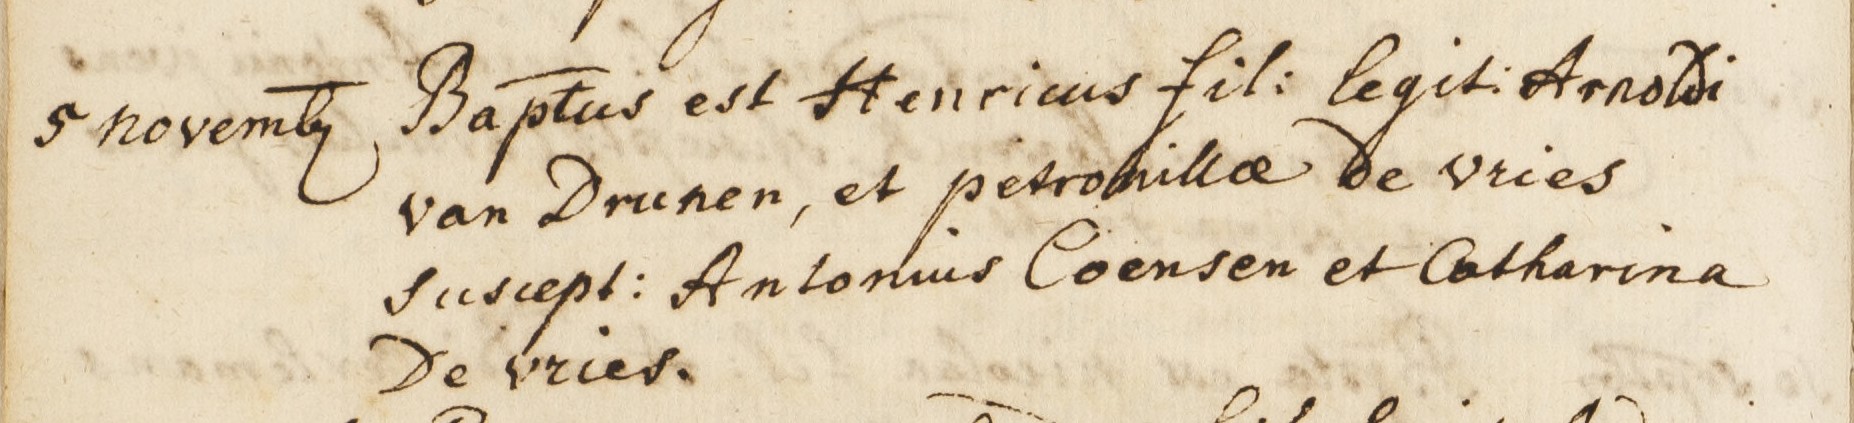 5 novemb Baptus est Henricus fil: legit: Arnoldi
van Drunen, et petronillæ De vries
suscept: Antonius Coensen et Catharina
De vries.